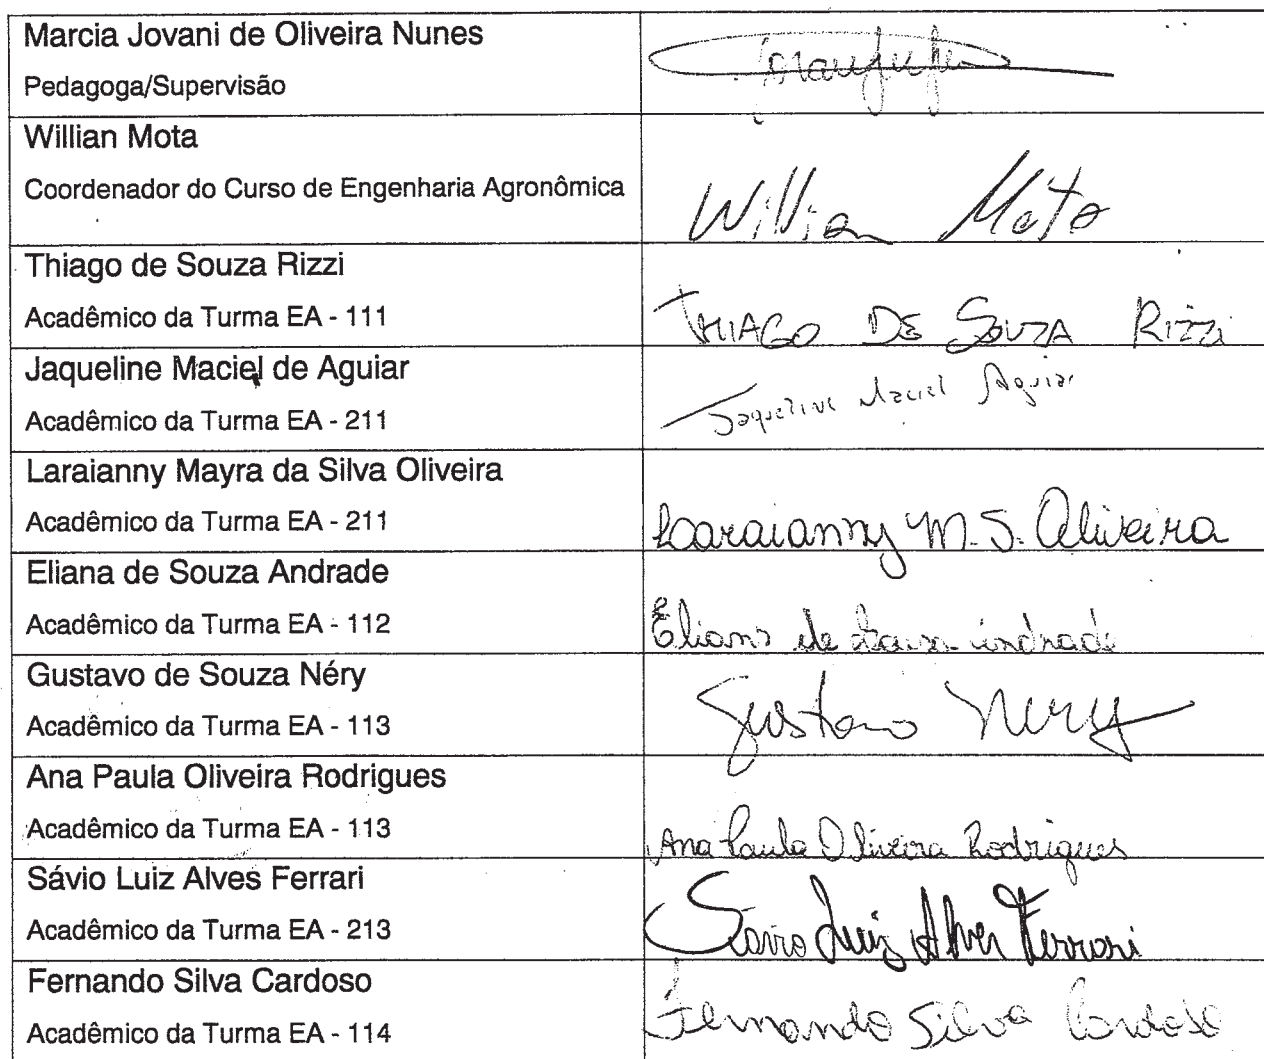 Marcia Jovani de Oliveira Nunes
Pedagoga/Supervisão
Willian Mota
Coordenador do Curso de Engenharia Agronômica
Willian Mota
Thiago de Souza Rizzi
Acadêmico da Turma EA - 111
THIAGO DE SOUZA RIZZI
Jaqueline Maciel de Aguiar
Acadêmico da Turma EA - 211
Jaqueline Maciel Aguiar
Laraianny Mayra da Silva Oliveira
Acadêmico da Turma EA - 211
Laraianny M. S. Oliveira
Eliana de Souza Andrade
Acadêmico da Turma EA - 112
Eliana de Souza Andrade
Gustavo de Souza Néry
Acadêmico da Turma EA - 113
Gustavo Nery
Ana Paula Oliveira Rodrigues
Acadêmico da Turma EA - 113
Ana Paula Oliveira Rodrigues
Sávio Luiz Alves Ferrari
Acadêmico da Turma EA - 213
Savio Luiz Alves Ferrari
Fernando Silva Cardoso
Acadêmico da Turma EA - 114
Fernando Silva Cardoso